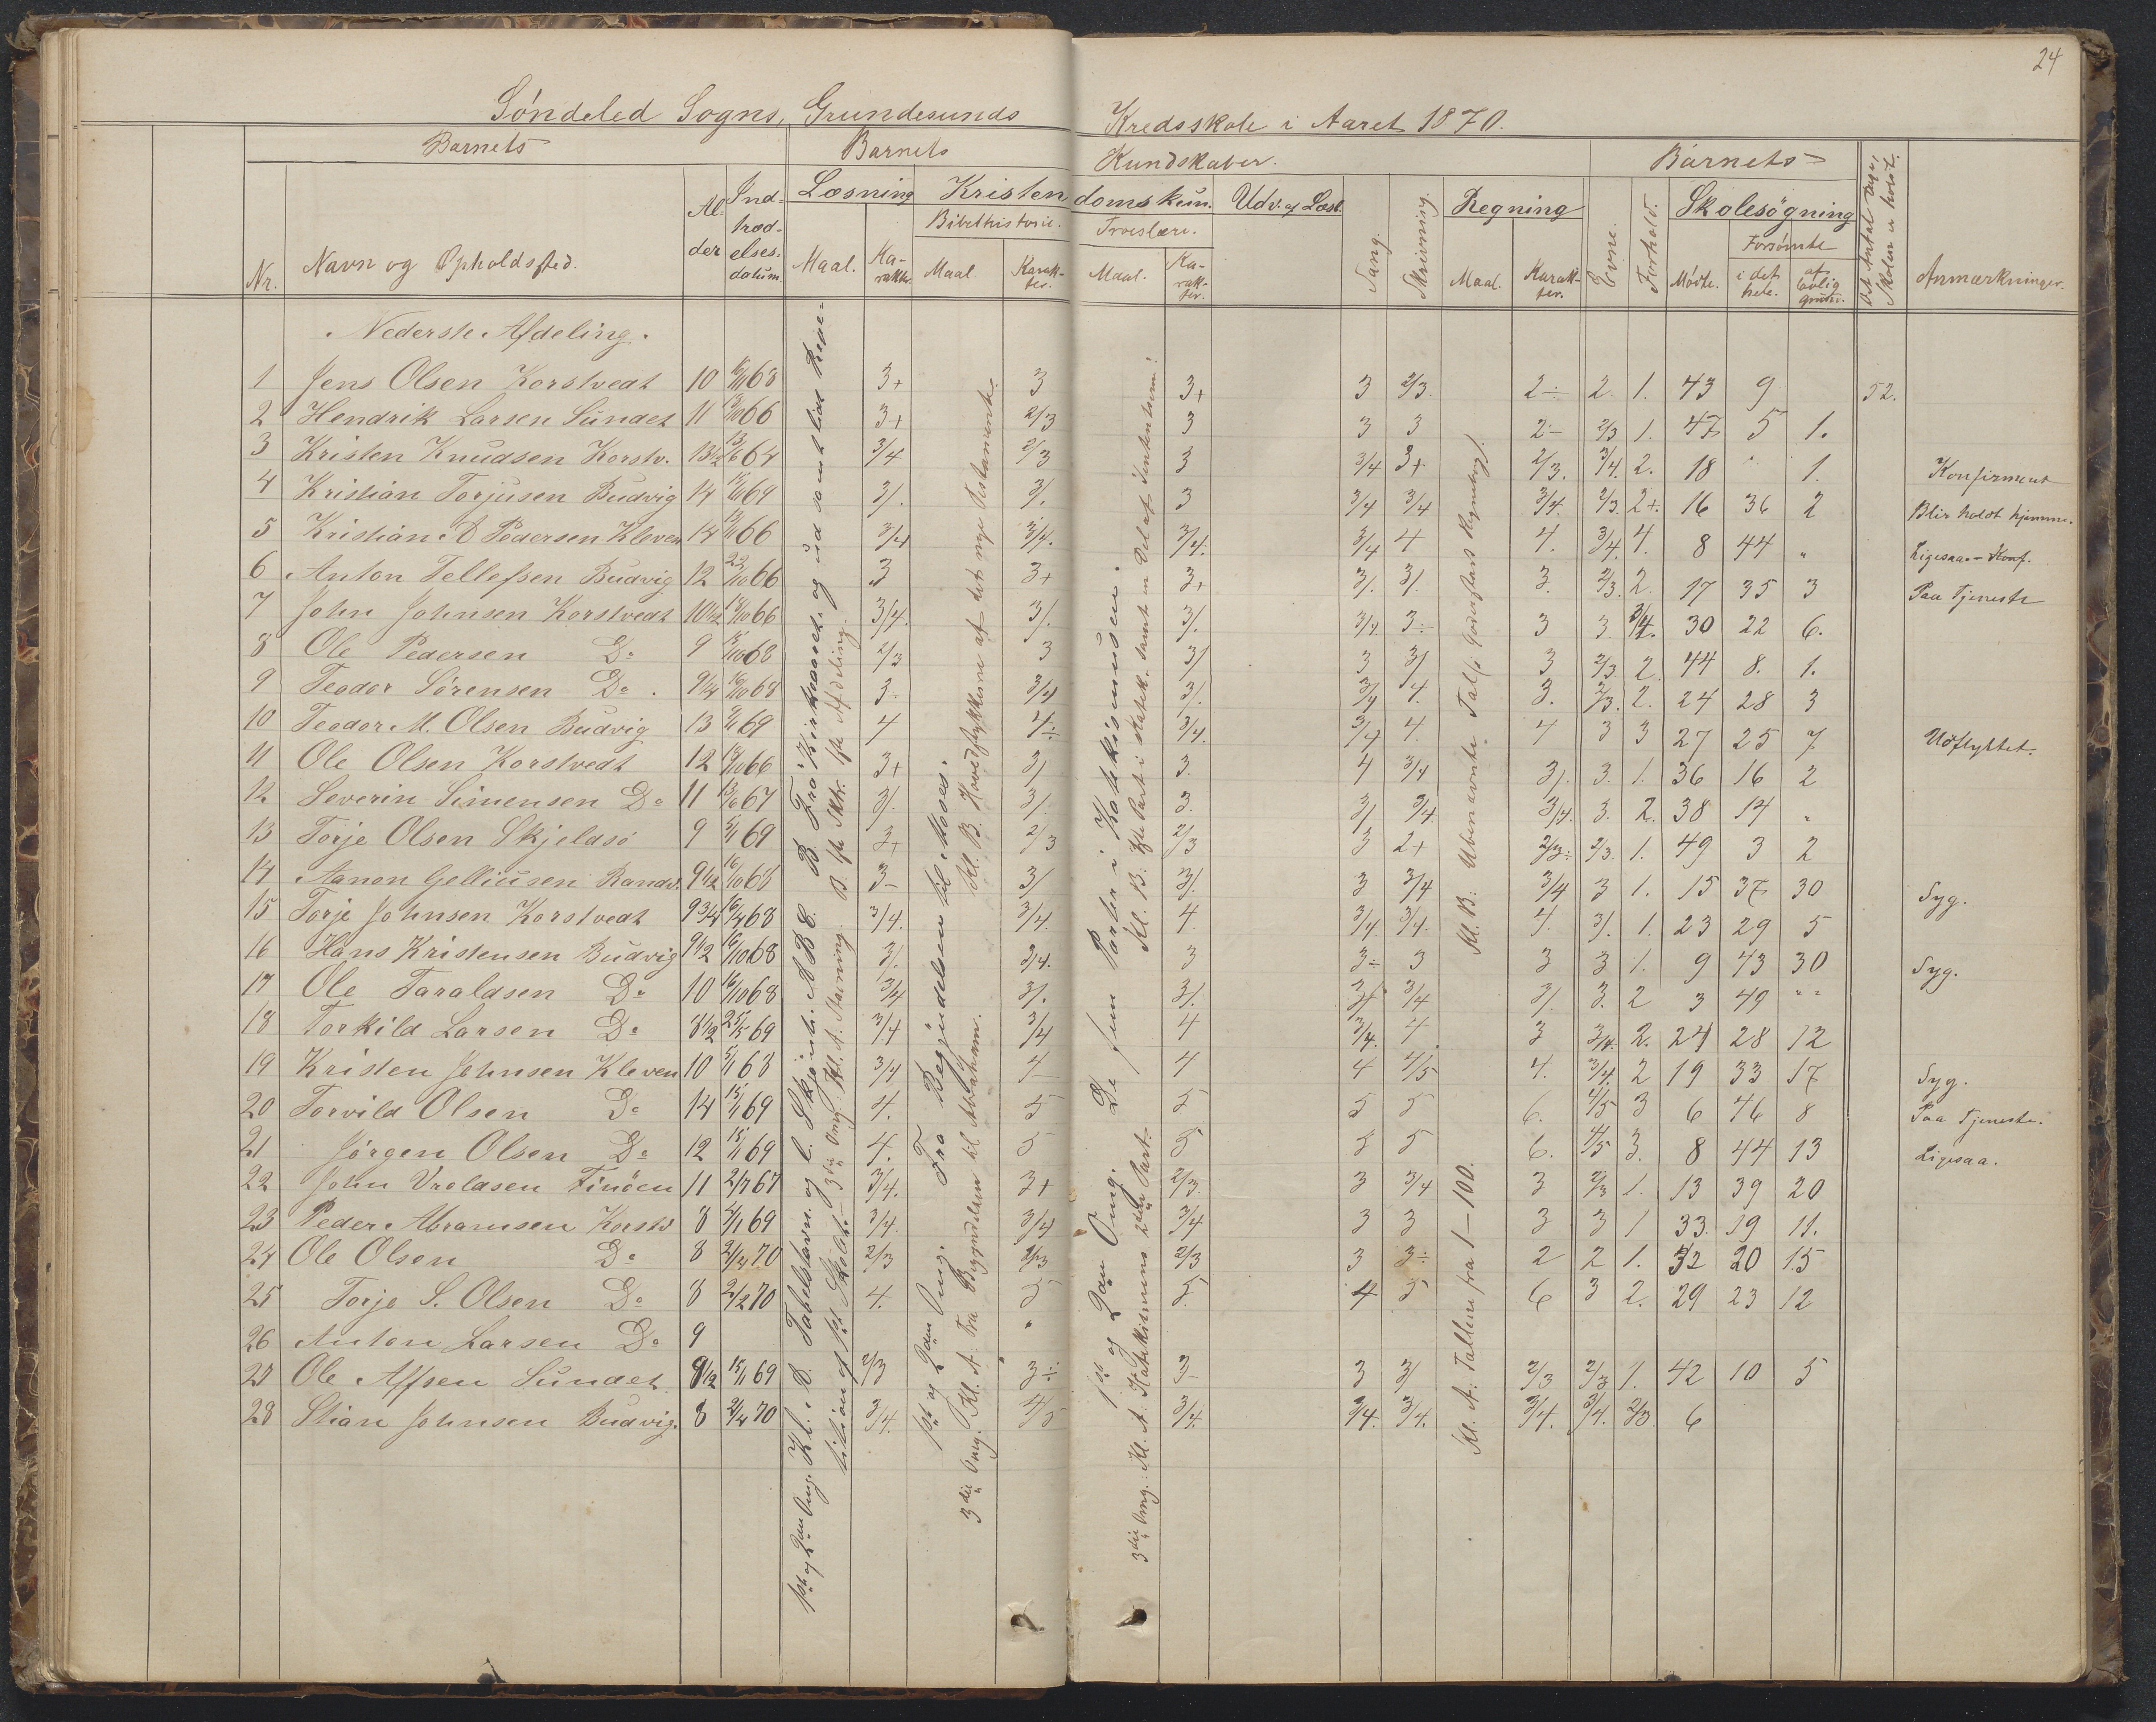 24
Söndeled Sogns, Grundesunds Kredsskole i Aaret 1870.
Barnets Barnets Kundskaber. Barnets
Nr. Navn og Opholdsted. Al-der Ind-træd-elses-datum Læsning Kristendomskun. Udv. af Læsb. Sang. Skrivning. Regning Evne. Forhold. Skolesögning Det Antal Dage, Skolen er holdt. Anmærkninger.
Bibelhistorie. Troeslære. Forsömte
Maal. Ka-rakter. Maal. Karak-ter. Maal. Ka-rak-ter. Maal. Karak-ter. Mödte. i det hele. af lovlig grund.
Nederste Afdeling.
1 Jens Olsen Korstvedt 10 16/11 63 3+ 3 3+ 3 2/3 2÷ 2. 1. 43 9 52.
2 Hendrik Larsen Sundet 11 /10 66 3+ 2/3 3 3 3 2- 2/3 1. 47 5 1.
3 Kristen Knudsen Korstv. 13½ 13/6 64 3/4 2/3 3 3/4 3+ 2/3. 3/4. 2. 18 1. Konfirmeret
4 Kristian Torjusen Budvig 14 /11 69 3/. 3/. 3 3/4 3/4 3/4. 2/3. 2+. 16 36 2 Blir holdt hjemme.
5 Kristian A Pedersen Kleven 14 /11 66 3/4 3/4. 3/4. 3/4 4 4. 3/4. 4. 8 44 " Ligesaa - Konf.
6 Anton Tellefsen Budvig 12 22/10 66 3 3+ 3+ 3/. 3/. 3. 2/3. 2. 17 35 3 Paa Tjeneste
7 John Johnsen Korstvedt 10½ /10 66 3/4. 3/. 3/. 3/4. 3÷ 3 3. 3/4. 30 22 6.
8 Ole Pedersen Do 9 /10 68 2/3 3 3/ 3 3/ 3 2/3. 2. 44 8. 1.
9 Teodor Sörensen Do. 9¼ 16/10 68 3÷ 3/4 3/. 3/4 4. 3. 2/3. 2. 24 28 3
10 Teodor M. Olsen Budvig 13 /11 69 4 4÷ 3/4. 3/4 4. 4 3 3 27 25 7 Udflyttet.
11 Ole Olsen Korstvedt 12 /10 66 3+ 3/ 3. 4 3/4 3/. 3. 1. 36 16 2
12 Severin Simensen Do 11 13/6 67 3/. 3/. 3. 3/ 3/4 3/4. 3. 2. 38 14 "
13 Torje Olsen Skjeldsö 9 5/1 69 3+ 2/3 2/3 3 2+ 2/3÷ 2/3. 1. 49 3 2
14 Aanon Gelliusen Randv. 9½ 16/10 68 3- 3/ 3/. 3 3/4 3/4 3 1. 15 37 30 Syg.
15 Torje Johnsen Korstvedt 9¾ 16/4 68 3/4. 3/4. 4. 3/4. 3/4. 4. 3/. 1. 23 29 5
16 Hans Kristensen Budvig 9½ 16/10 68 3/. 3/4. 3 3÷ 3 3 3 1. 9 43 30 Syg.
17 Ole Taraldsen Do 10 16/10 68 3/4 3/. 3/. 3/. 3/4 3/. 3. 2 3 49 " "
18 Torkild Larsen Do 8½ 25/5 69 3/4 3/4 4 3/4. 4. 3 3/4. 2. 24 28 12
19 Kristen Johnsen Kleven 10 5/1 63 3/4 4 4 4 4/5 4. 3/4. 2 19 33 17 Syg.
20 Torvild Olsen Do 14 15/1 69 4. 5 5 5 5 6. 4/5 3 6 46 8 Paa Tjeneste.
21 Jörgen Olsen Do 12 15/1 69 4. 5 5 5 5 6. 4/5 3. 8 44 13 Ligesaa.
22 John Vroldsen Finöen 11 2/7 67 3/4. 3+ 2/3. 3 3/4 3 2/3 1. 13 39 20
23 Peder Abramsen Korstv 8 2/1 69 3/4. 3/4 3/4 3 3 3 3 1 33. 19 11.
24 Ole Olsen Do 8 2/4 70 2/3 2/3 2/3 3 3÷ 2 2 1. 32 20 15
25 Torje S. Olsen Do 8 2/2 70 4. 5 5. 4 5 6 3 2. 29 23 12
26 Anton Larsen Do 9
27 Ole Alfsen Sundet 8½ 15/1 69 2/3 3÷ 3- 3 3/ 2/3 2/3 1. 42 10 5
28 Stian Johnsen Budvig. 8 2/4 70 3/4. 4/5 3/4. 3/4. 3/4. 3/4. 3/4. 2/3. 6
1ste og 2den Omg. Kl. A. Tabelstavn. og l. Skjönh. A B C. B. Fra Kirkeaaret og ud samt lidt Repe-
tition af ste Skole. 3die Omg. Kl. A: Stavning. B. 1ste Skr. 1ste Afdeling.
1ste og 2den Omg. Fra Begyndelsen til Moses.
3die Omg. Kl. A: Fra Begyndelsen til Abraham. Kl. B. Hovedstykkerne af det nye Testamente.
1ste og 2den Omg. De fem Parter i Katekismusen.
3die Omg. Kl. A: Katekismens 2den Part. Kl. B: 3die Part i Katek. samt en Del af Sententserne.
Kl. A: Tallene fra 1-100. Kl. B: Ubenævnte Tal (Godtfasts Regnebog).